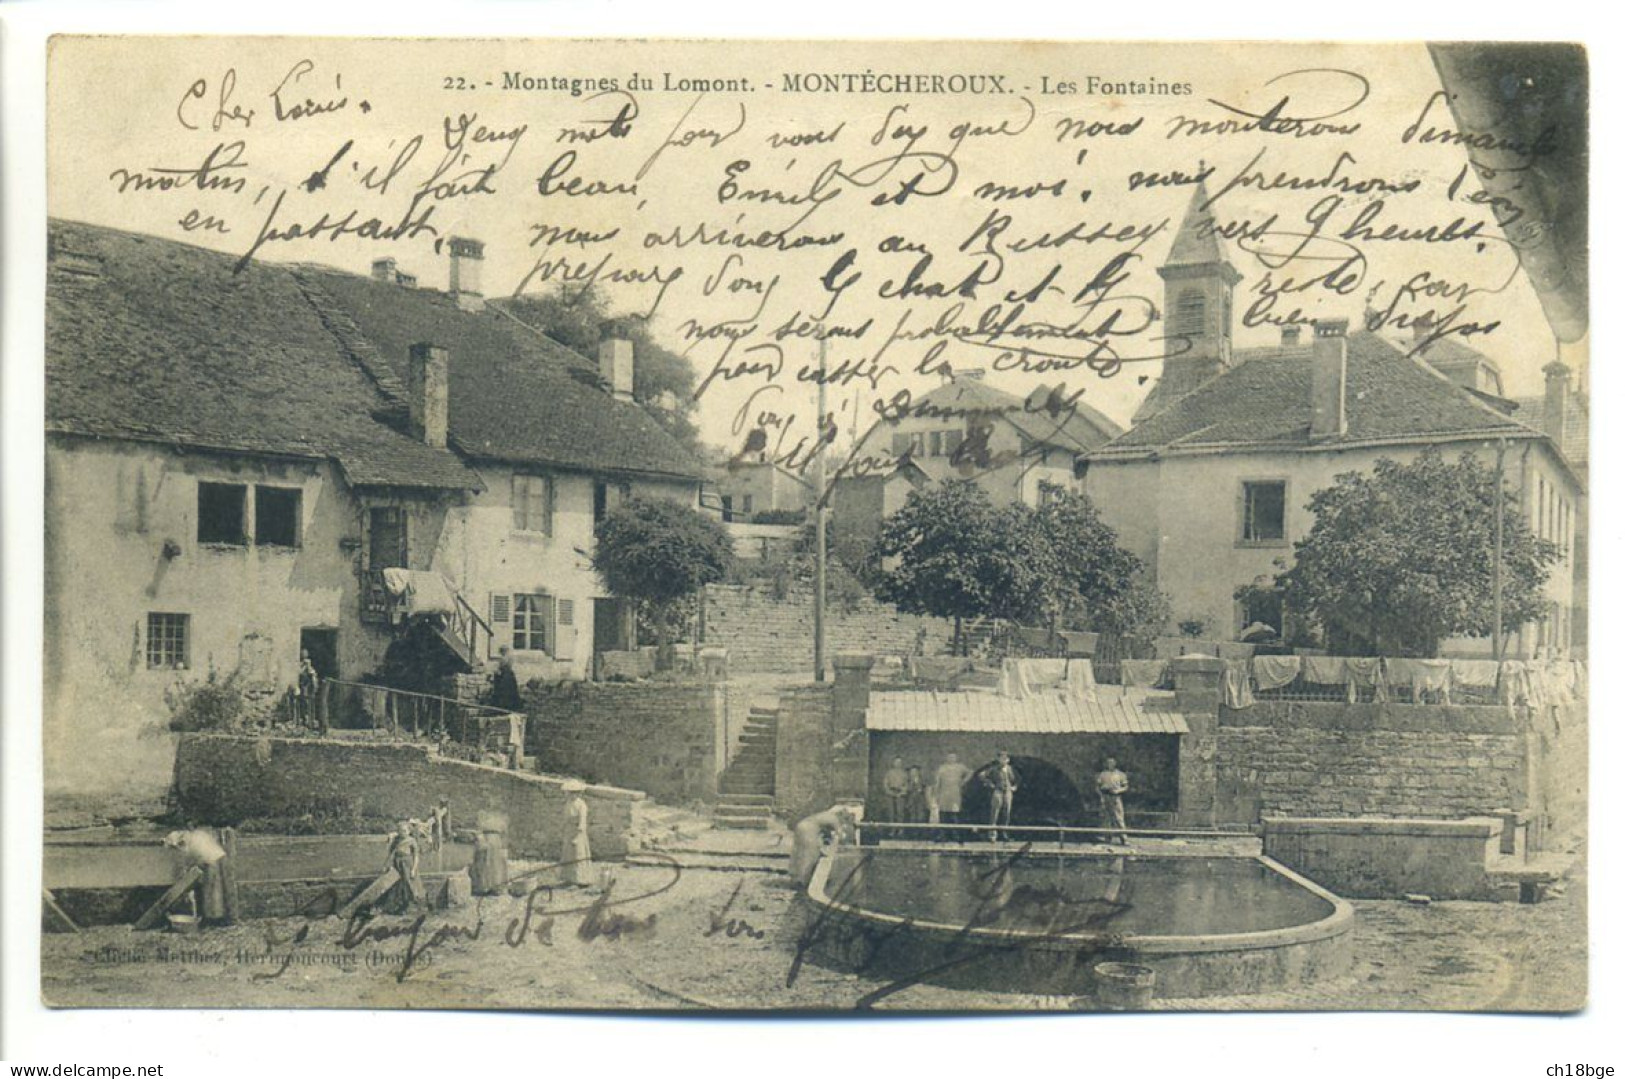 22. - Montagnes du Lomont. - MONTÉCHEROUX. - Les Fontaines
Cher Louis.
Deux mots pour vous dire que nous monterons dimanche
matin, s'il fait beau, Emile et moi. nous prendrons Léon
en passant, nous arriverons au Russey vers 9 heures.
préparez donc le chat et le reste, car
nous serons probablement bien disposés
pour casser la croute.
Donc à Dimanche
s'il fait beau
Le bonjour de tous
Cliché Metthez, Hérimoncourt (Doubs)
www.delcampe.net
ch18bge